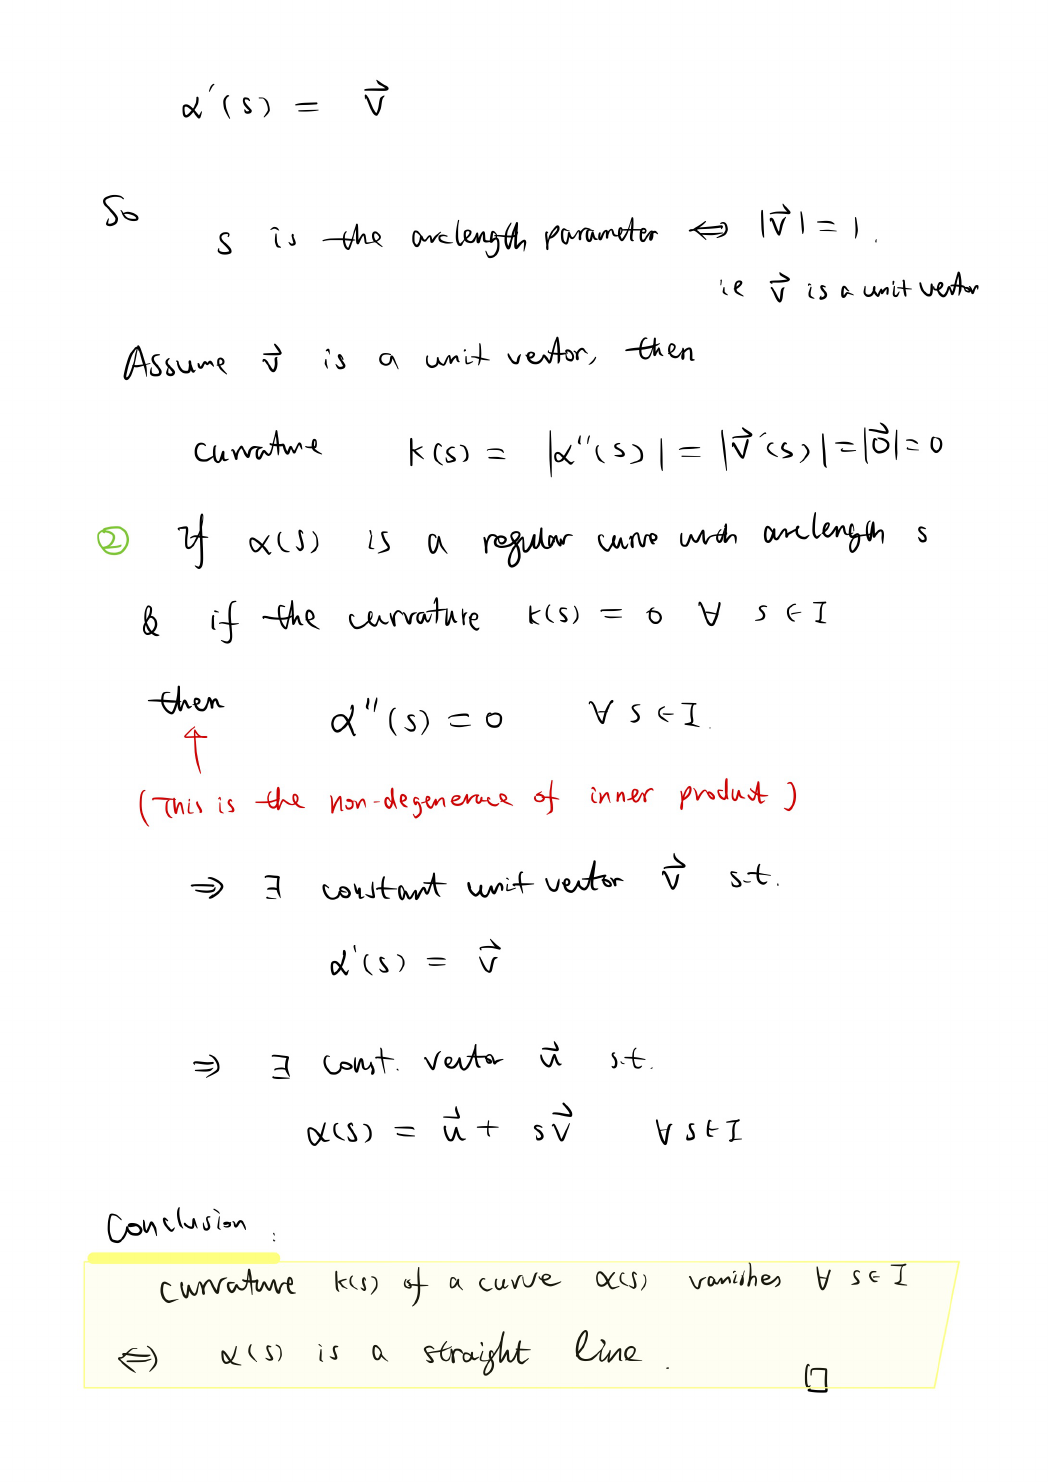 α'(s) = v⃗
So
s is the arclength parameter ⇔ |v⃗| = 1.
ie v⃗ is a unit vector
Assume v⃗ is a unit vector, then
curvature k(s) = |α''(s)| = |v⃗'(s)| = |0⃗| = 0
② If α(s) is a regular curve with arclength s
& if the curvature k(s) = 0 ∀ s ∈ I
then α''(s) = 0 ∀ s ∈ I.
↑
(This is the non-degenerace of inner product)
⇒ ∃ constant unit vector v⃗ s.t.
α'(s) = v⃗
⇒ ∃ const. vector u⃗ s.t.
α(s) = u⃗ + sv⃗ ∀ s ∈ I
Conclusion :
curvature k(s) of a curve α(s) vanishes ∀ s ∈ I
⇔ α(s) is a straight line. □